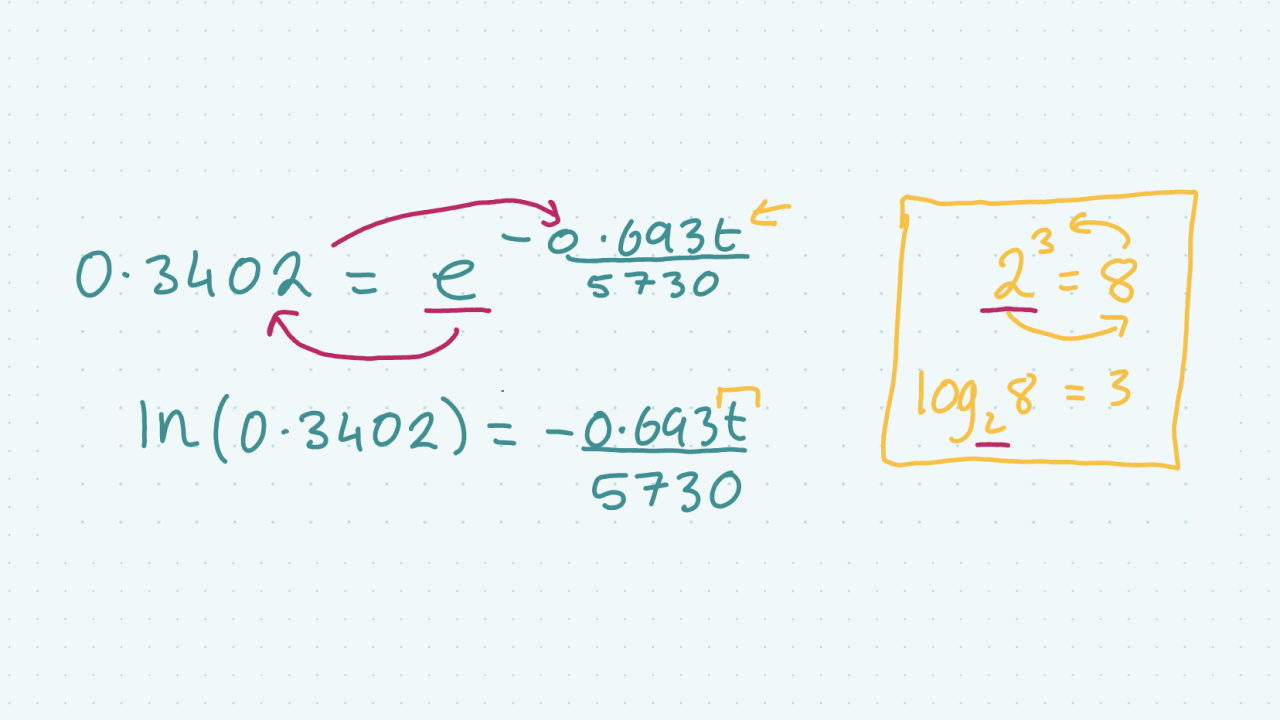 0.3402 = e^(-0.693t/5730)
ln(0.3402) = -0.693t/5730
2³ = 8
log₂8 = 3